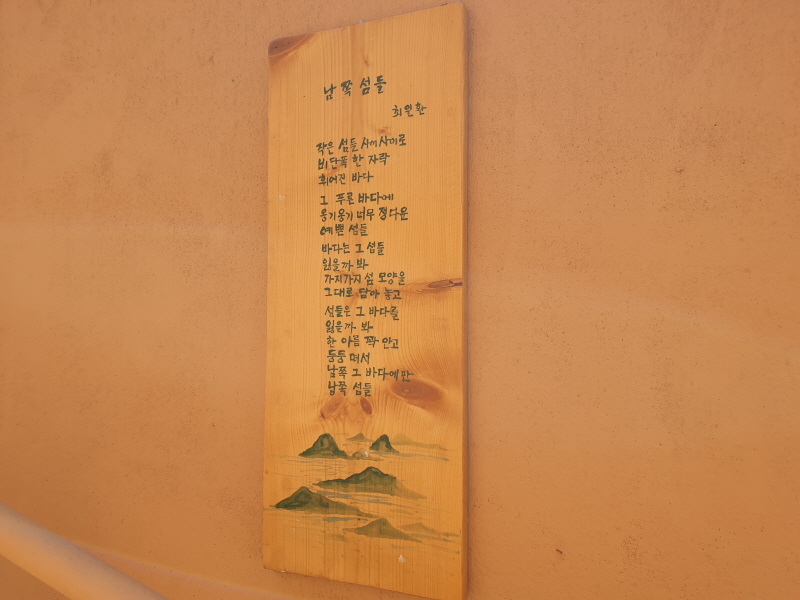 남쪽 섬들
최월환
작은 섬들 사이사이로
비단폭 한 자락
휘어진 바다
그 푸른 바다에
옹기옹기 너무 정다운
예쁜 섬들
바다는 그 섬들
잃을까 봐
가지가지 섬 모양을
그대로 담아 놓고
섬들은 그 바다를
잃을까 봐
한 아름 꽉 안고
둥둥 떠서
남쪽 그 바다에만
남쪽 섬들